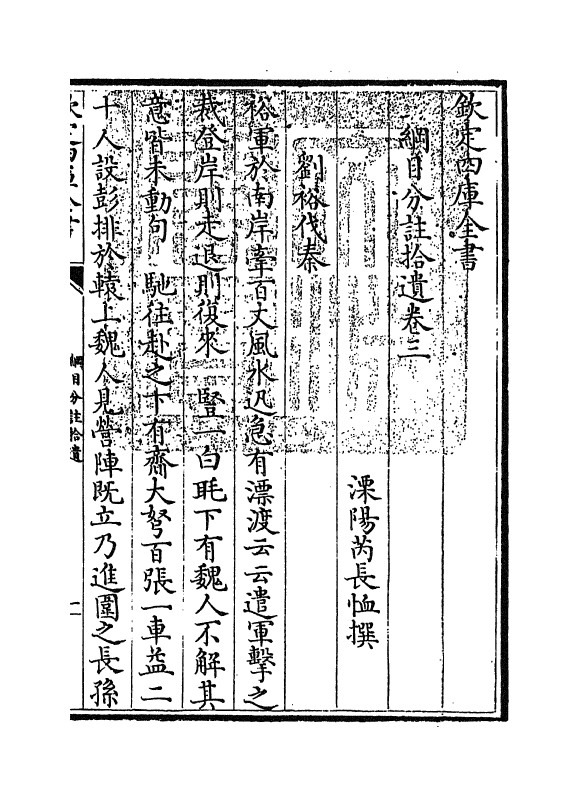 欽定四庫全書
綱目分註拾遺卷三
溧陽芮長恤撰
劉裕伐秦
裕軍於南岸牽百丈風水迅急有漂渡云云遣軍擊之
裁登岸則走退則復來　豎一白毦下有魏人不解其
意皆未動句　馳往赴之下有齎大弩百張一車益二
十人設彭排於轅上魏人見營陣既立乃進圍之長孫
欽定四庫全書
綱目分註拾遺
一